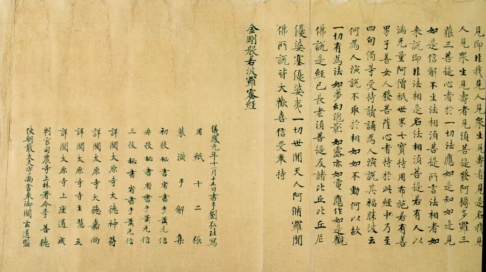 見即非我見人見衆生見壽者見是名我見
人見衆生見壽者見須菩提發阿耨多羅三
藐三菩提心者於一切法應如是知如是見
如是信解不生法相須菩提所言法相者如
來說即非法相是名法相須菩提若有人以
滿无量阿僧祇世界七寶持用布施若有善
男子善女人發菩薩心者持於此經乃至
四句偈等受持讀誦為人演說其福勝彼云
何為人演說不取於相如如不動何以故
一切有為法如夢幻泡影如露亦如電應作如是觀
佛說是經已長老須菩提及諸比丘比丘尼
優婆塞優婆夷一切世間天人阿脩羅聞
佛所說皆大歡喜信受奉持
金剛般若波羅蜜經
儀鳳元年十一月十五日書手劉弘珪寫
用紙十二張
裝潢手解集
初校秘書省書手蕭元信
再校秘書省書手蕭元信
三校秘書省書手蕭元信
詳閱太原寺大德神苻
詳閱太原寺大德嘉尚
詳閱太原寺寺主慧立
詳閱太原寺上座道成
判官司農寺上林署令李善德
使朝散大夫守尚舍奉御閻玄道監